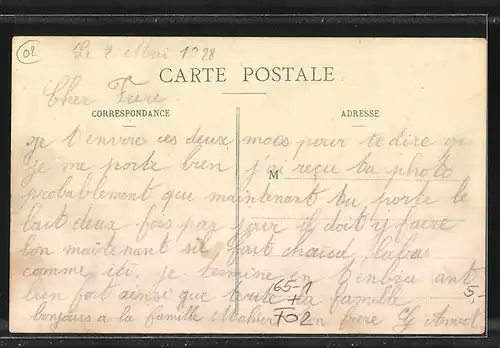 02
Le 2 Mai 1928
CARTE POSTALE
Cher Frere.
CORRESPONDANCE
ADRESSE
je t'envoie ces deux mots pour te dire que
je me porte bien j'ai reçu ta photo
M
probablement que maintenant tu porte le
lait deux fois par jour il doit y faire
bon maintenant sil fait chaud labas
comme ici, je termine en t'embra ant
bien fort ainsi que toute la famille
65-1
+
702
5-
bonjours a la famille ton frere